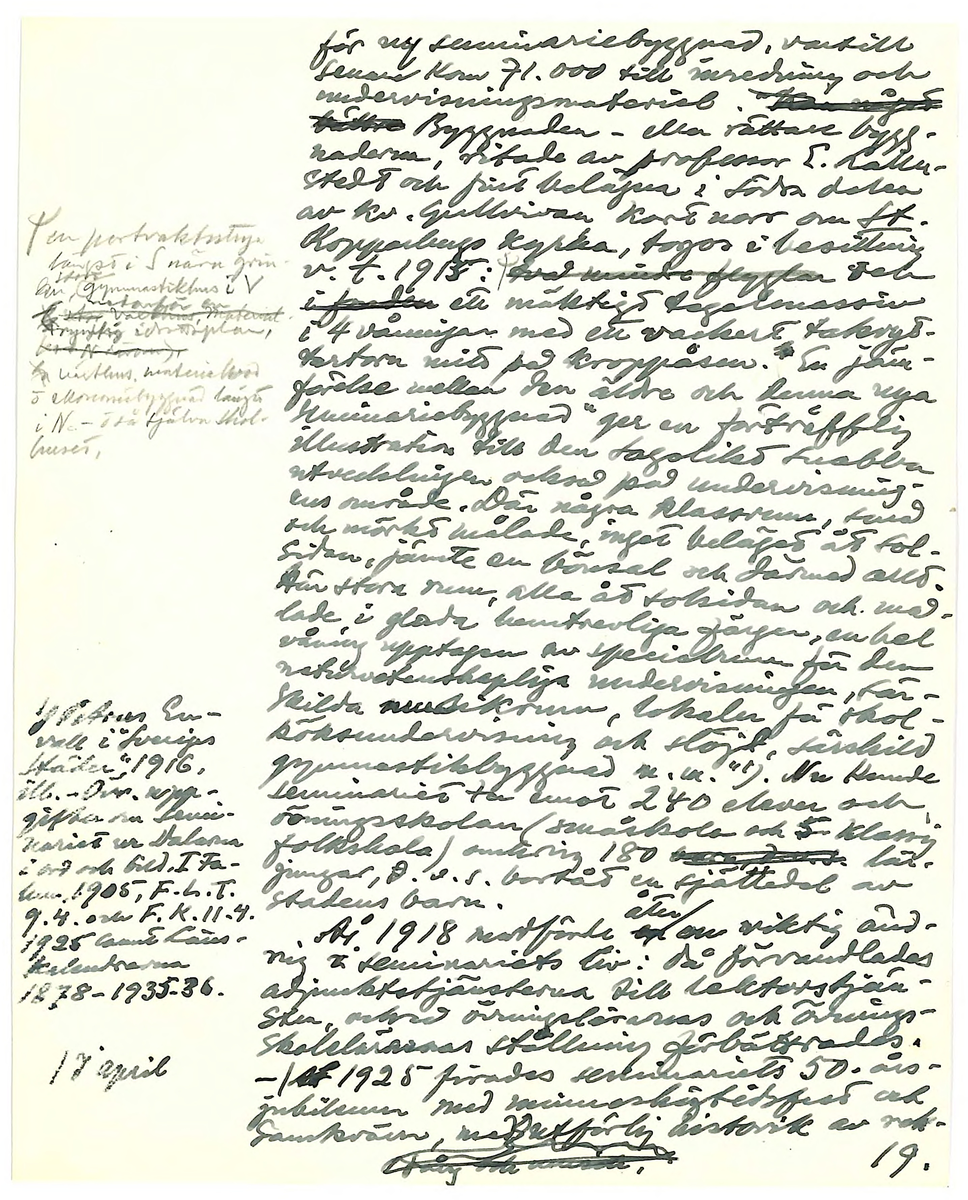 för ny seminariebyggnad, vartill
senare kom 71.000 till inredning och
undervisningsmaterial.
Byggnaden - eller rättare bygg-
naderna, ritade av professor E. Laller-
stedt och fint belägna i södra delen
av kv. Gullvivan kort norr om St.
Kopparbergs kyrka, togos i besittning
v. t. 1915: två mindre flyglar och
i fonden ett mäktigt tegelmassiv
i 4 våningar med ett vackert takryt-
tartorn mitt på kroppåsen. "En jäm-
förelse mellan den äldre och denna nya
seminariebyggnad "ger en förträfflig
illustration till den dagsliks snabba
utvecklingen också på undervisning-
ens område. Där några klassrum, små
och mörkt målade, inget beläget åt sol-
sidan, jämte en bönsal och därmed allt.
Här stora rum, alla åt solsidan och må-
lade i glada hemtrevliga färger, en hel
våning upptagen av specialrum för den
naturvetenskapliga undervisningen, sär-
skilda musikrum, lokaler för skol-
köksundervisning och slöjd, särskild
gymnastikbyggnad m. m." 1). Nu kunde
seminariet ta emot 240 elever och
övningsskolan (småskola och 5-klassig
folkskola) omkring 180 lär-
jungar, d. v. s. bortåt en sjättedel av
stadens barn.
År 1918 medförde åter en viktig änd-
ring i seminariets liv: då förvandlades
adjunktstjänsterna till lektorstjän-
ster, och övningslärarnas och övnings-
skolelärarnas ställning förbättrades.
-/ 1925 firades seminariets 50-års-
jubileum med minneshögtidsfest och
samkväm, med utförlig historik av rek-
19.
en portraktsstuga
längst i S nära grin-
den, gymnastikhus i V
vakthus, materialbod
o ekonomibyggnad längst
i N. - o så själva skol-
huset,
1/ Petrus En-
vall i "Sveriges
Städer" 1916,
ill. - Övr. upp-
gifter om semi-
nariet ur Dalarna
i ord och bild. I Fa-
lun 1905, F.L.T.
9.4. och F.K. 11.4.
1925 samt Läns-
kalendrarna
1878-1935-36.
1/ i april